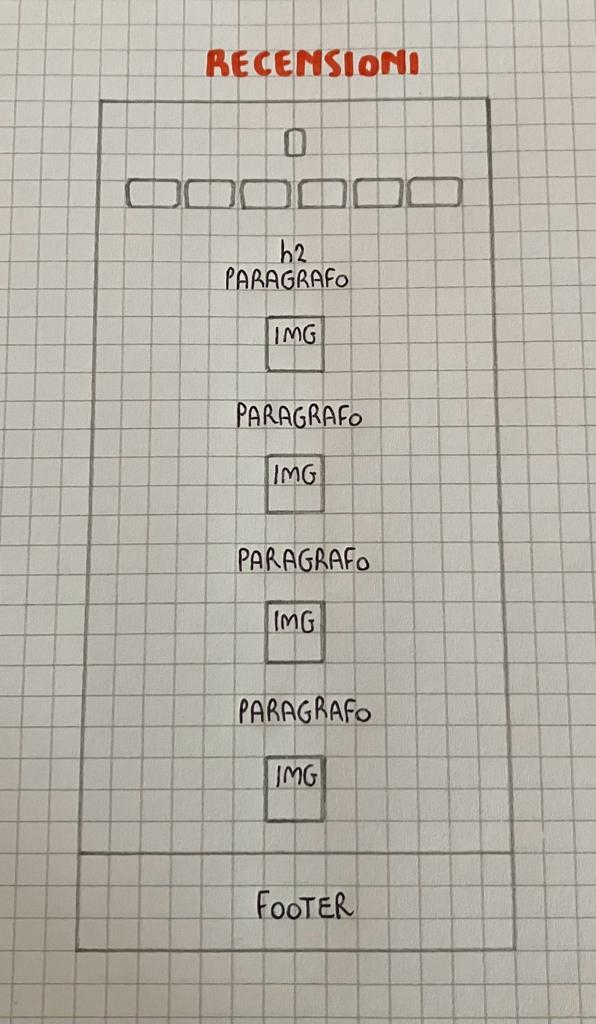 RECENSIONI
h2
PARAGRAFO
IMG
PARAGRAFO
IMG
PARAGRAFO
IMG
PARAGRAFO
IMG
FOOTER